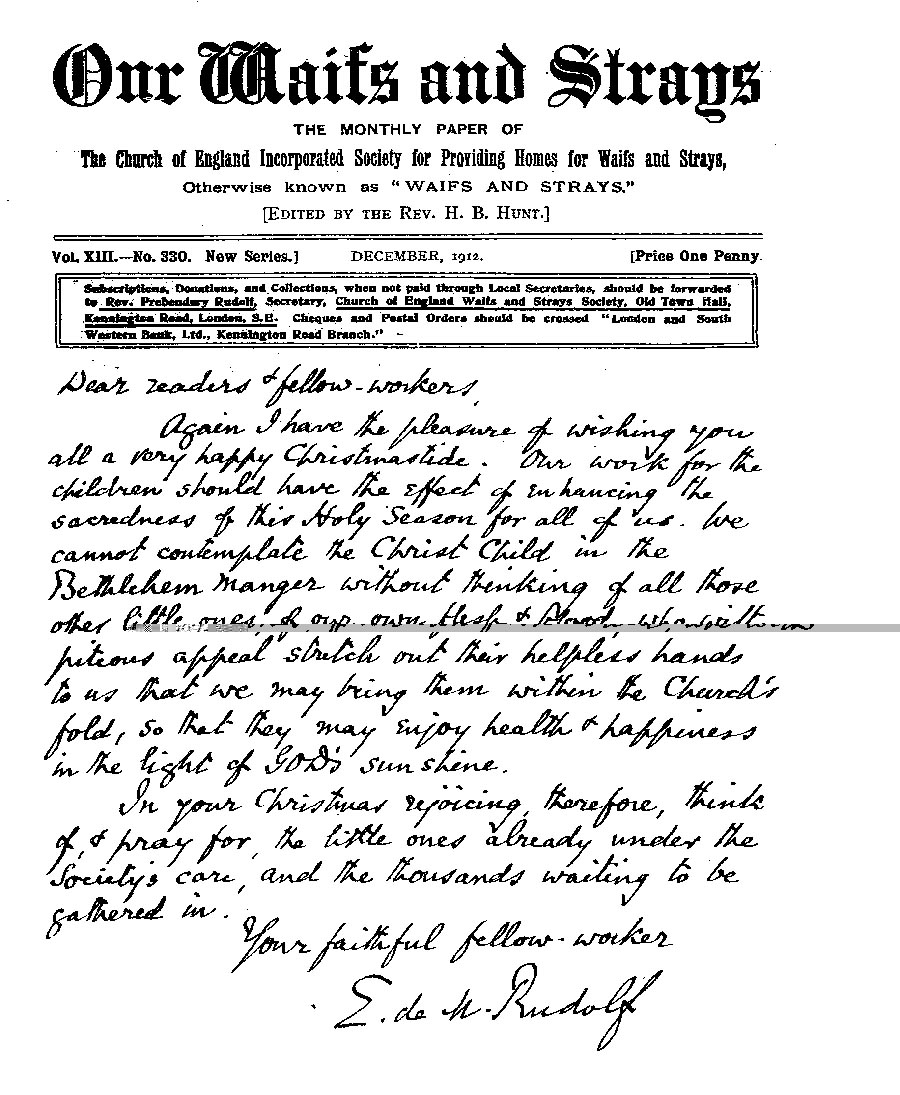 Our Waifs and Strays
THE MONTHLY PAPER OF
The Church of England Incorporated Society for Providing Homes for Waifs and Strays,
Otherwise known as "WAIFS AND STRAYS."
[EDITED BY THE REV. H. B. HUNT.]
Vol. XIII.—No. 330. New Series.] DECEMBER, 1912. [Price One Penny.
Subscriptions, Donations, and Collections, when not paid through Local Secretaries, should be forwarded
to Rev. Prebendary Rudolf, Secretary, Church of England Waifs and Strays Society, Old Town Hall,
Kennington Road, London, S.E. Cheques and Postal Orders should be crossed "London and South
Western Bank, Ltd., Kennington Road Branch."
Dear readers & fellow-workers,
Again I have the pleasure of wishing you
all a very happy Christmastide. Our work for the
children should have the effect of enhancing the
sacredness of this Holy Season for all of us. We
cannot contemplate the Christ Child in the
Bethlehem Manger without thinking of all those
other little ones, of our own flesh & blood, who with
piteous appeal stretch out their helpless hands
to us that we may bring them within the Church's
fold, so that they may enjoy health & happiness
in the light of GOD's sunshine.
In your Christmas rejoicing, therefore, think
of, & pray for, the little ones already under the
Society's care, and the thousands waiting to be
gathered in.
Your faithful fellow-worker
E. de M. Rudolf